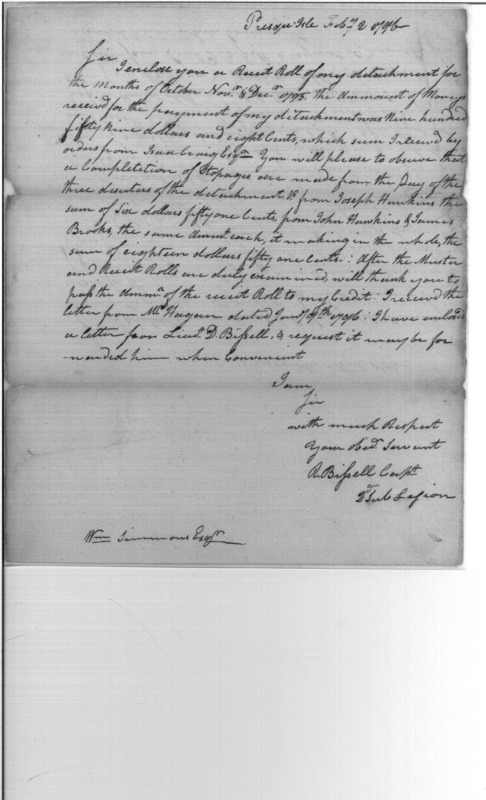 Presqu'Isle Feby 2 1796
Sir
I enclose you a Receit Roll of my detachment for
the Months of October Novr. & Decr. 1795. The Ammount of Money
receivd for the payment of my detachment was Nine hundred
fifty Nine dollars and eight Cents, which sum I receivd by
orders from Isaac Craig Esqr. You will please to observe that
a Completetion of Stopages are made from the Pay of the
three deserters of the detachment Vs from Joseph Hawkins the
sum of Six dollars fifty one Cents, from John Hawkins & James
Brooks, the same Ammt each, it making in the whole, the
sum of eighteen dollars fifty one cents: After the Muster
and Receit Rolls are duly examined, will thank you to
pass the Ammt. of the receit Roll to my Credit. I receivd the
letter from Mr. Hagan dated Jany 9th 1796: I have enclosd
a letter from Lieut. D. Bissell, & request it may be for
warded him when Convenient
I am
Sir
with much Respect
Your Obd. Servant
R. Bissell Capt.
2d Sub Legion
Wm Simmons Esqr